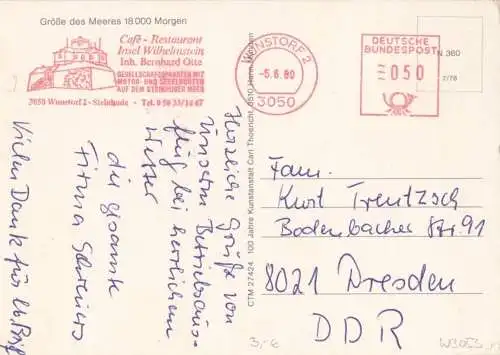 Größe des Meeres 18000 Morgen
Café - Restaurant
Insel Wilhelmstein
Inh. Bernhard Otte
GESELLSCHAFTSFAHRTEN MIT
MOTOR- UND SEGELBOOTEN
AUF DEM STEINHUDER MEER
3050 Wunstorf 2 - Steinhude - Tel. 0 50 33/
WUNSTORF 2
-5.6.80
3050
DEUTSCHE
BUNDESPOST
050
N 360
2/78
Herzliche Grüße von
unserem Betriebsaus-
flug bei herrlichem
Wetter
die gesamte
Firma
Vielen Dank für lb. Brief
CTM 27424. 100 Jahre Kunstanstalt Carl Thoericht, 3510 Hann. Münden
Fam.
Kurt Trentzsch
Bodenbacher Str. 91
8021 Dresden
DDR
3,-